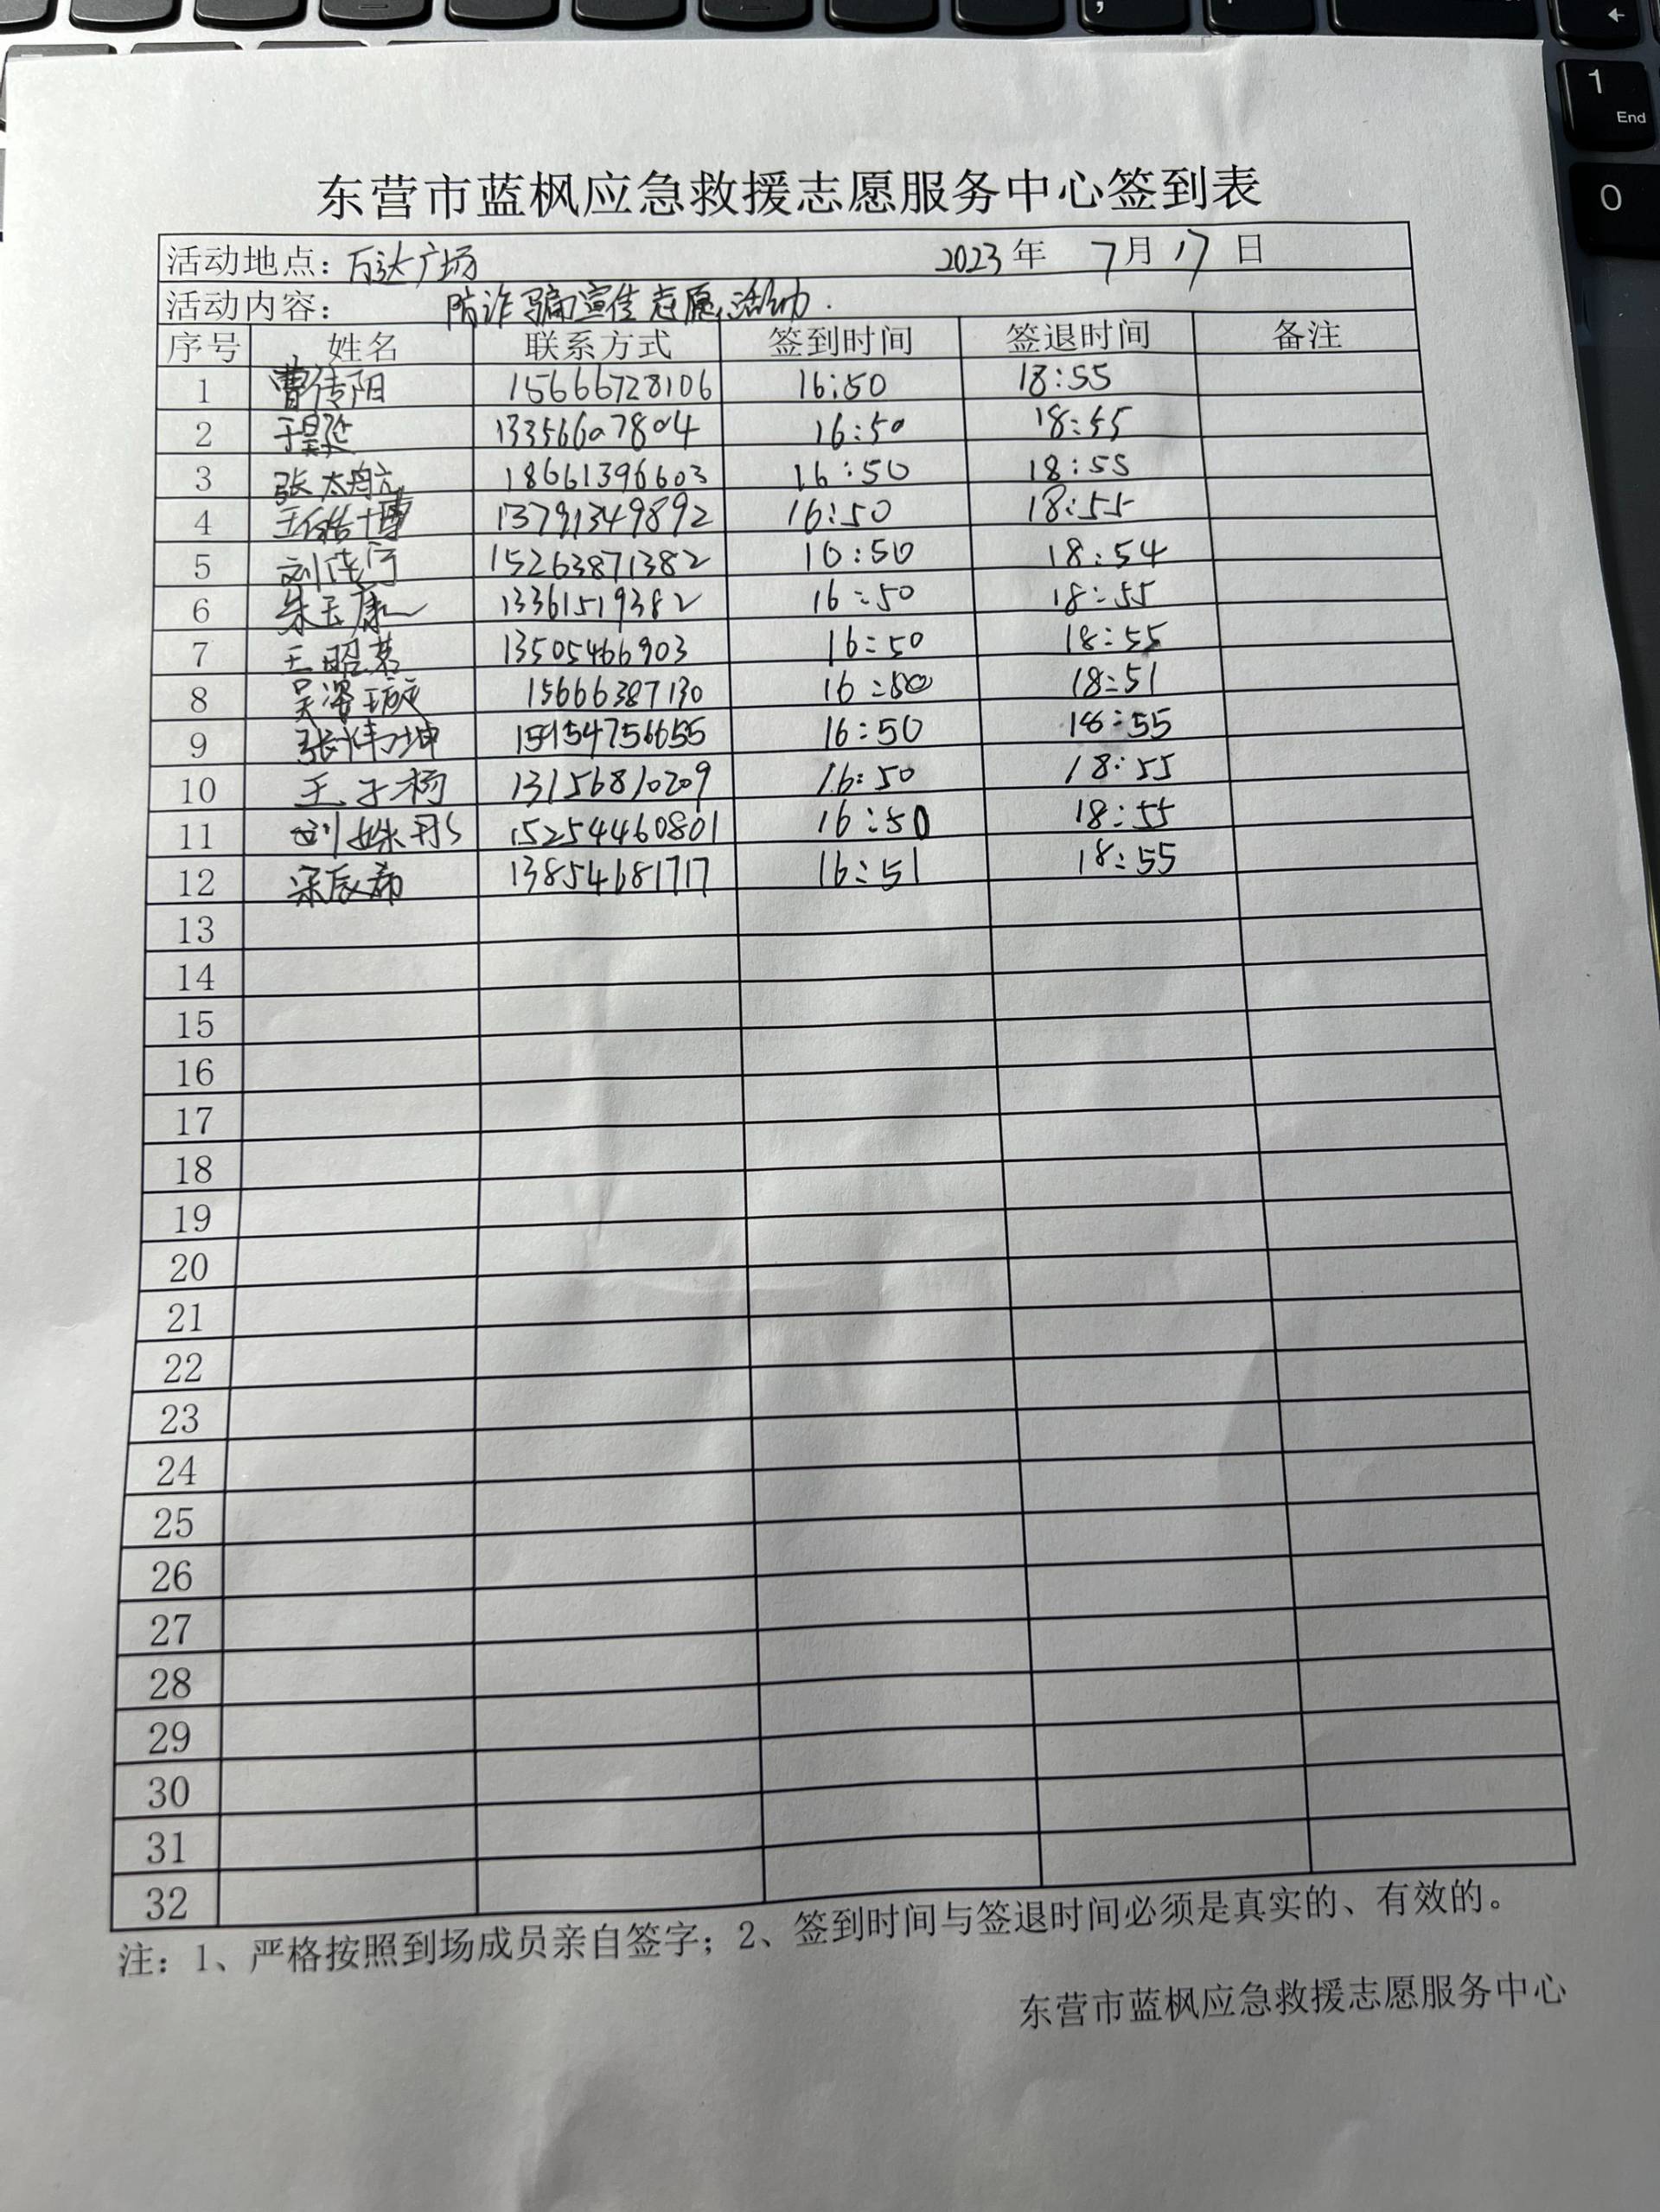 东营市蓝枫应急救援志愿服务中心签到表
活动地点：万达广场 2023年 7月17日
活动内容： 防诈骗宣传志愿活动.
序号 姓名 联系方式 签到时间 签退时间 备注
1 曹传阳 15666728106 16:50 18:55
2 于昊延 13356607804 16:50 18:55
3 张太航 18661396603 16:50 18:55
4 王皓博 13791349892 16:50 18:55
5 15263871382 16:50 18:54
6 朱玉康 13361519382 16:50 18:55
7 王昭茗 13505466903 16:50 18:55
8 吴姿璇 15666387130 16:50 18:51
9 张博坤 16:50 18:55
10 王子杨 13156810209 16:50 18:55
11 刘姝彤 15254460801 16:50 18:55
12 宋辰希 13854681717 16:51 18:55
13
14
15
16
17
18
19
20
21
22
23
24
25
26
27
28
29
30
31
32
注：1、严格按照到场成员亲自签字；2、签到时间与签退时间必须是真实的、有效的。
东营市蓝枫应急救援志愿服务中心
1
End
0